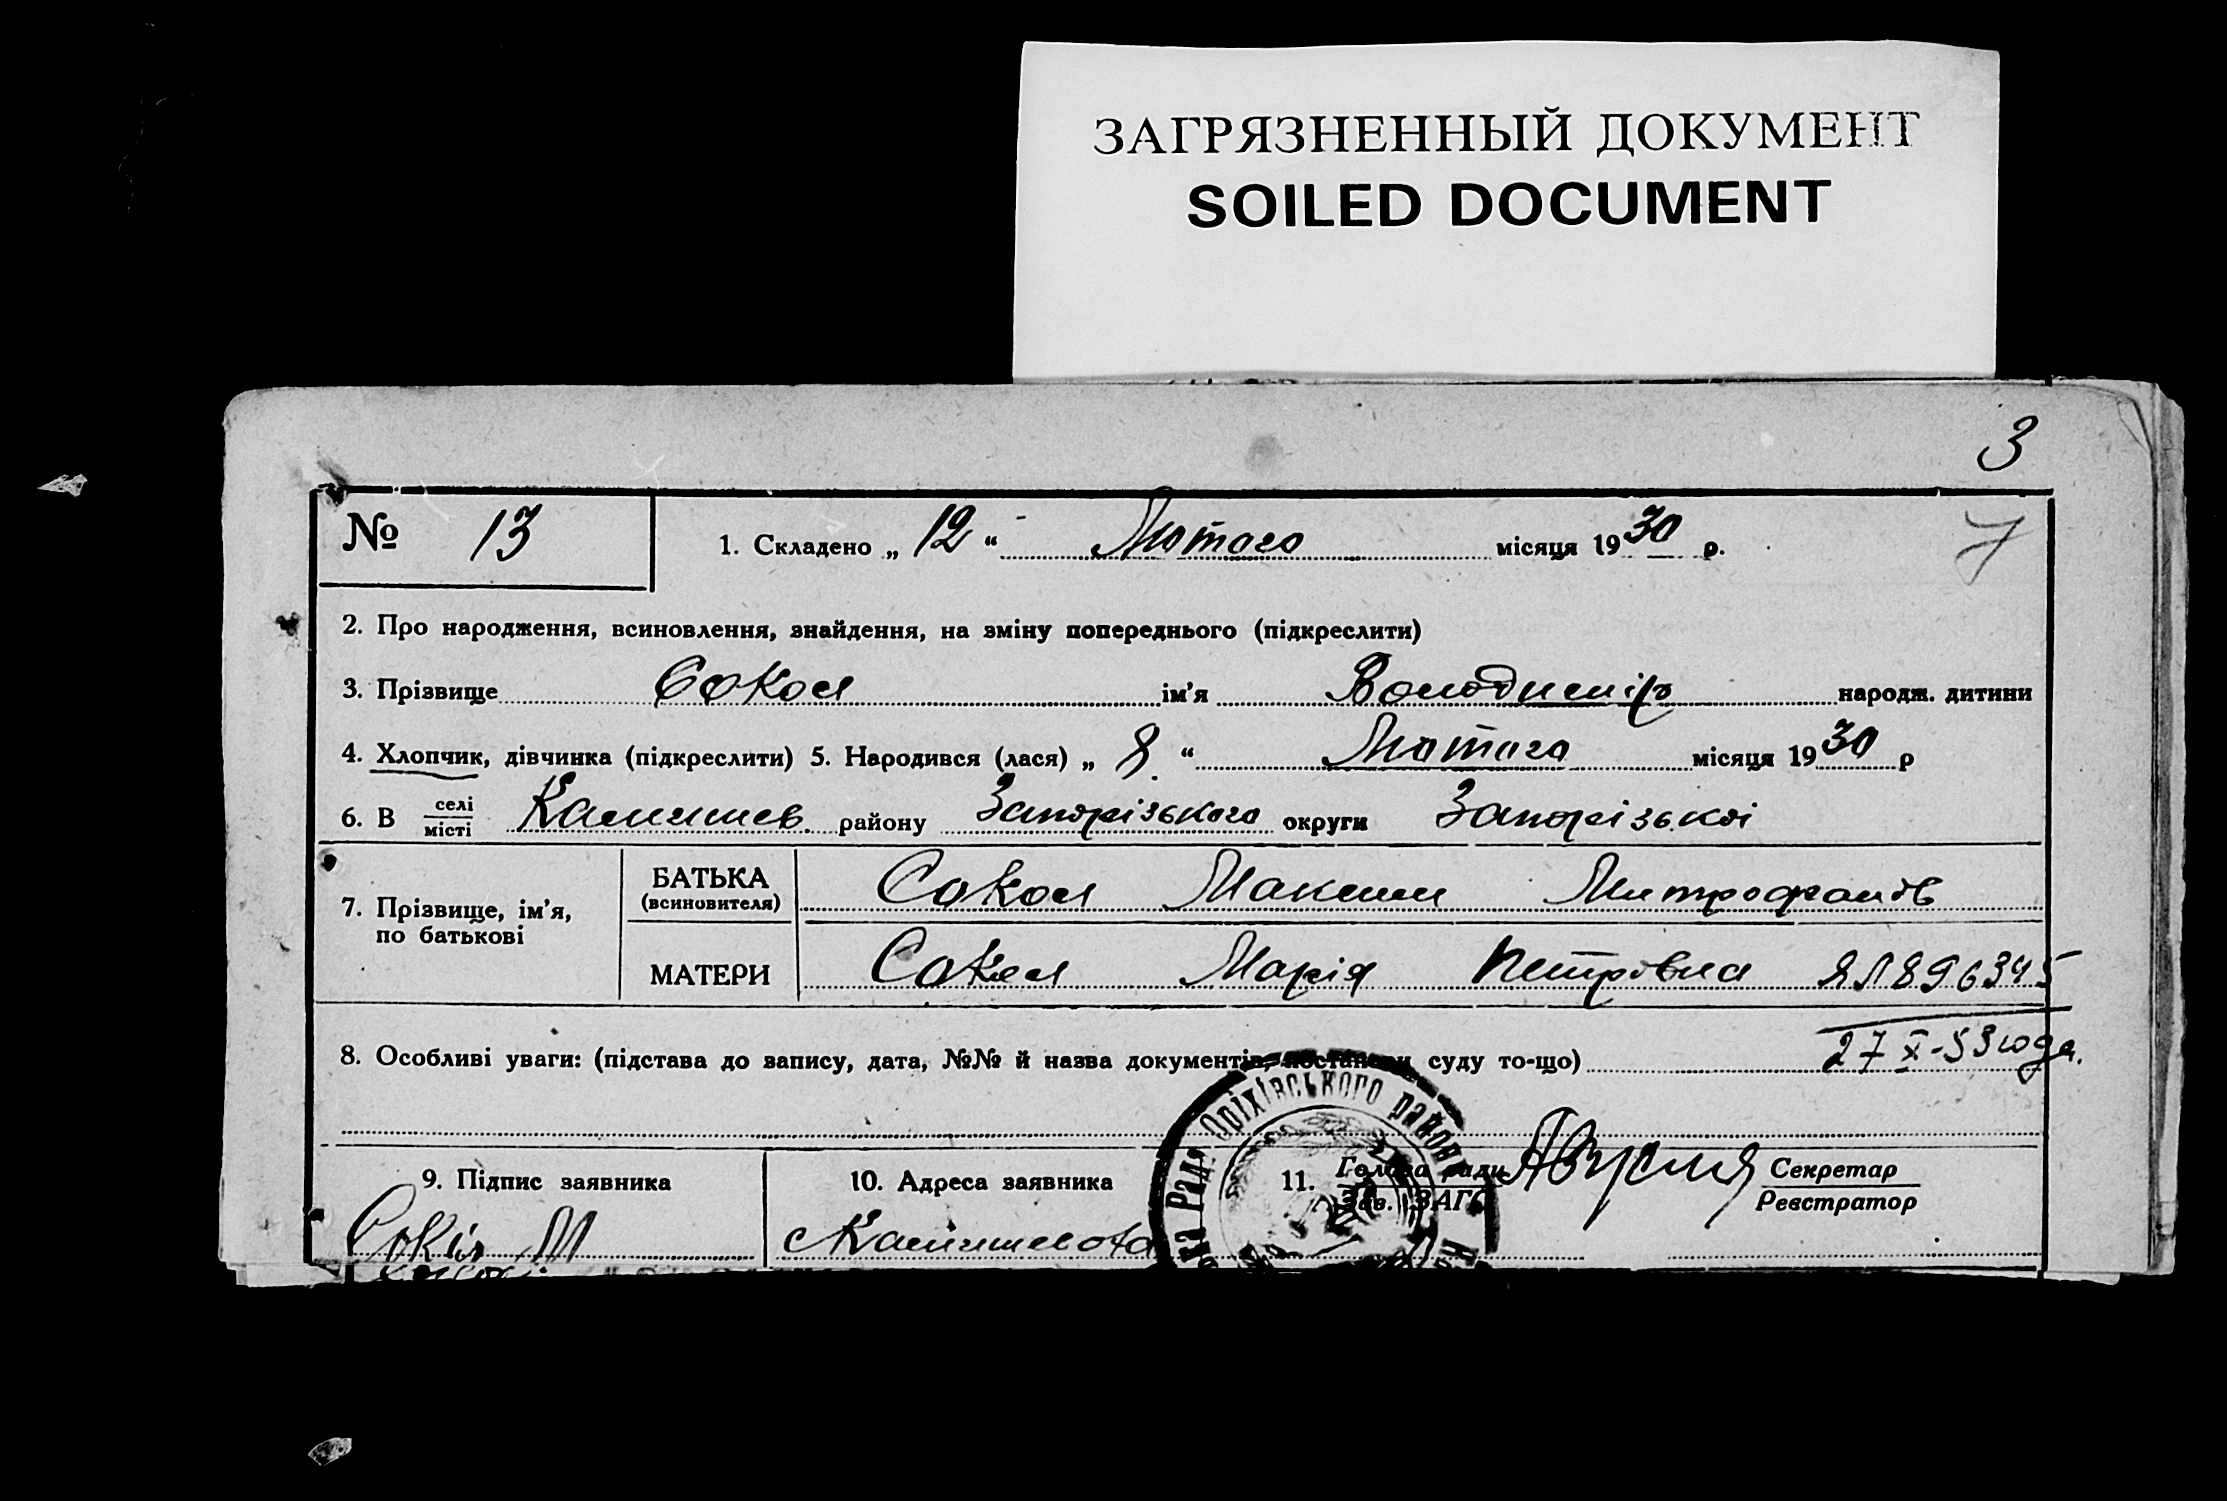 ЗАГРЯЗНЕННЫЙ ДОКУМЕНТ
SOILED DOCUMENT
3
№ 13
1. Складено „ 12 “ Лютого місяця 1930 р.
7
2. Про народження, всиновлення, знайдення, на зміну попереднього (підкреслити)
3. Прізвище Сокол ім'я Володимір народж. дитини
4. Хлопчик, дівчинка (підкреслити) 5. Народився (лася) „ 8 “ Лютого місяця 1930 р
6. В селі/місті Камишев. району Запорізького округи Запорізької
7. Прізвище, ім'я, по батькові
БАТЬКА (всиновителя) Сокол Максим Митрофанів
МАТЕРИ Сокол Марія Петрівна ЯЛ 896345
8. Особливі уваги: (підстава до запису, дата, №№ й назва документів, постанови суду то-що) 27 X-53 года.
9. Підпис заявника
10. Адреса заявника
11. Голова ради / Зав. ЗАГС
Секретар / Реєстратор
Сокіл М
Камишевата
Рада Оріхівського району